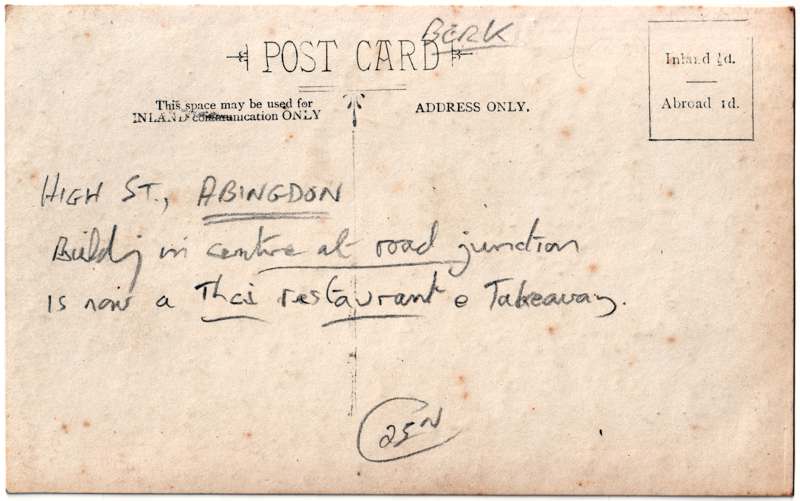 BERK
POST CARD
Inland ½d.
Abroad 1d.
This space may be used for
INLAND communication ONLY
ADDRESS ONLY.
HIGH ST., ABINGDON
Building in centre at road junction
is now a Thai restaurant & Takeaway.